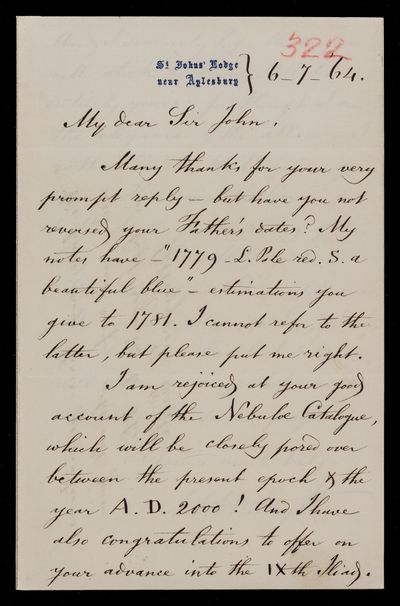 322
St Johns' Lodge
near Aylesbury } 6-7-64.
My dear Sir John,
Many thanks for your very
prompt reply — but have you not
reversed your Father's dates? My
notes have — "1779 - L. Pale red. S. a
beautiful blue" — estimations you
give to 1781. I cannot refer to the
latter, but please put me right.
I am rejoiced at your good
account of the Nebulæ Catalogue,
which will be closely pored over
between the present epoch & the
year A.D. 2000! And I have
also congratulations to offer on
your advance into the IXth Iliad.